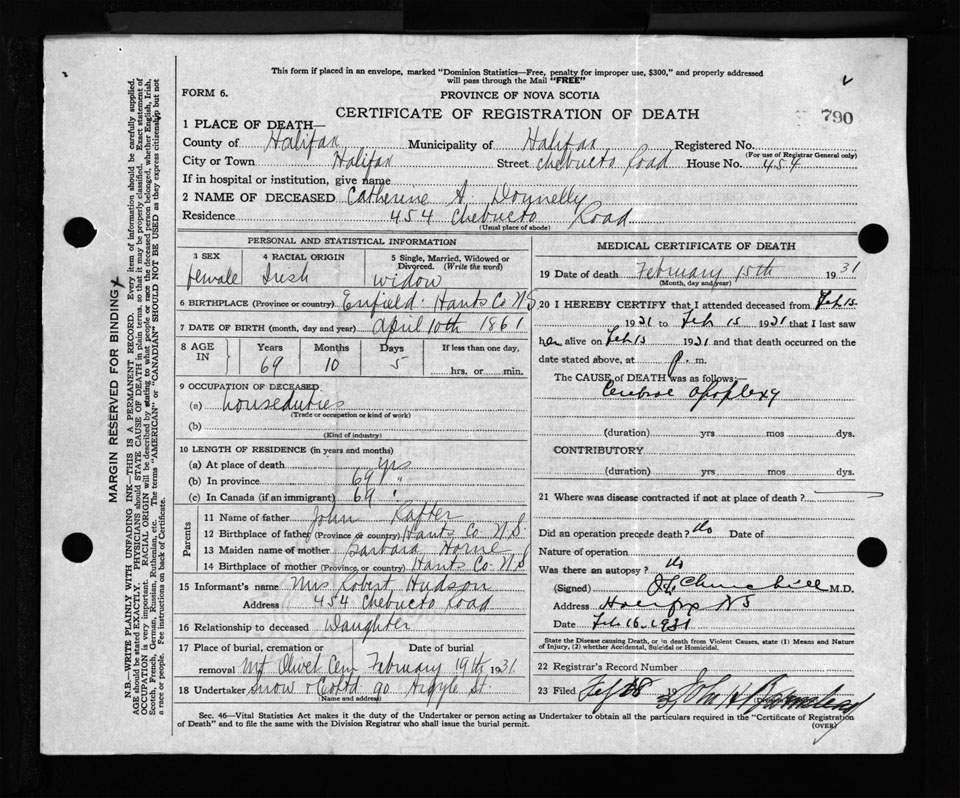 This form if placed in an envelope, marked "Dominion Statistics—Free, penalty for improper use, $300," and properly addressed
will pass through the Mail "FREE"
FORM 6.
PROVINCE OF NOVA SCOTIA
790
CERTIFICATE OF REGISTRATION OF DEATH
1 PLACE OF DEATH—
County of Halifax Municipality of Halifax Registered No.
(For use of Registrar General only)
City or Town Halifax Street Chebucto Road House No. 454
If in hospital or institution, give name
2 NAME OF DECEASED Catherine A Donnelly
Residence 454 Chebucto Road
(Usual place of abode)
PERSONAL AND STATISTICAL INFORMATION
3 SEX 4 RACIAL ORIGIN 5 Single, Married, Widowed or
Divorced. (Write the word)
female Irish widow
6 BIRTHPLACE (Province or country) Enfield. Hants Co N S
7 DATE OF BIRTH (month, day and year) April 10th 1861
8 AGE IN Years Months Days If less than one day,
69 10 5 hrs. or min.
9 OCCUPATION OF DECEASED:
(a) houseduties
(Trade or occupation or kind of work)
(b)
(Kind of industry)
10 LENGTH OF RESIDENCE (in years and months)
(a) At place of death yrs
(b) In province 69 "
(c) In Canada (if an immigrant) 69 "
Parents
11 Name of father John Rafter
12 Birthplace of father (Province or country) Hants Co N.S.
13 Maiden name of mother Barbara Horne
14 Birthplace of mother (Province or country) Hants Co N.S
15 Informant's name Mrs Robert Hudson
Address 454 Chebucto Road
16 Relationship to deceased Daughter
17 Place of burial, cremation or Date of burial
removal Mt Olivet Cem February 19th 1931
18 Undertaker Snow & Co Ltd 90 Argyle St.
(Name and address)
MEDICAL CERTIFICATE OF DEATH
19 Date of death February 15th 1931
(Month, day and year)
20 I HEREBY CERTIFY that I attended deceased from Feb 15
1931 to Feb 15 1931 that I last saw
her alive on Feb 15 1931 and that death occurred on the
date stated above, at P. m.
The CAUSE of DEATH was as follows:—
Cerebral apoplexy
(duration) yrs mos dys.
CONTRIBUTORY
(duration) yrs mos dys.
21 Where was disease contracted if not at place of death?
Did an operation precede death? No Date of
Nature of operation
Was there an autopsy? No
(Signed) Churchill M.D.
Address Halifax NS
Date Feb 16. 1931
State the Disease causing Death, or in death from Violent Causes, state (1) Means and
Nature of Injury, (2) whether Accidental, Suicidal or Homicidal.
22 Registrar's Record Number
23 Filed Feb 18 John H
Sec. 46—Vital Statistics Act makes it the duty of the Undertaker or person acting as Undertaker to obtain all the particulars required in the "Certificate of Registration
of Death" and to file the same with the Division Registrar who shall issue the burial permit.
(OVER)
MARGIN RESERVED FOR BINDING
N.B.—WRITE PLAINLY WITH UNFADING INK—THIS IS A PERMANENT RECORD. Every item of information should be carefully supplied.
AGE should be stated EXACTLY. PHYSICIANS should STATE CAUSE OF DEATH in plain terms, so that it may be properly classified. Exact statement of
OCCUPATION is very important. RACIAL ORIGIN will be described by stating to what people or race the deceased person belonged, whether English, Irish,
Scotch, French, German, Russian, Ruthenian, etc. The terms "AMERICAN" or "CANADIAN" SHOULD NOT BE USED as they express citizenship but not
a race or people. Fee instructions on back of Certificate.